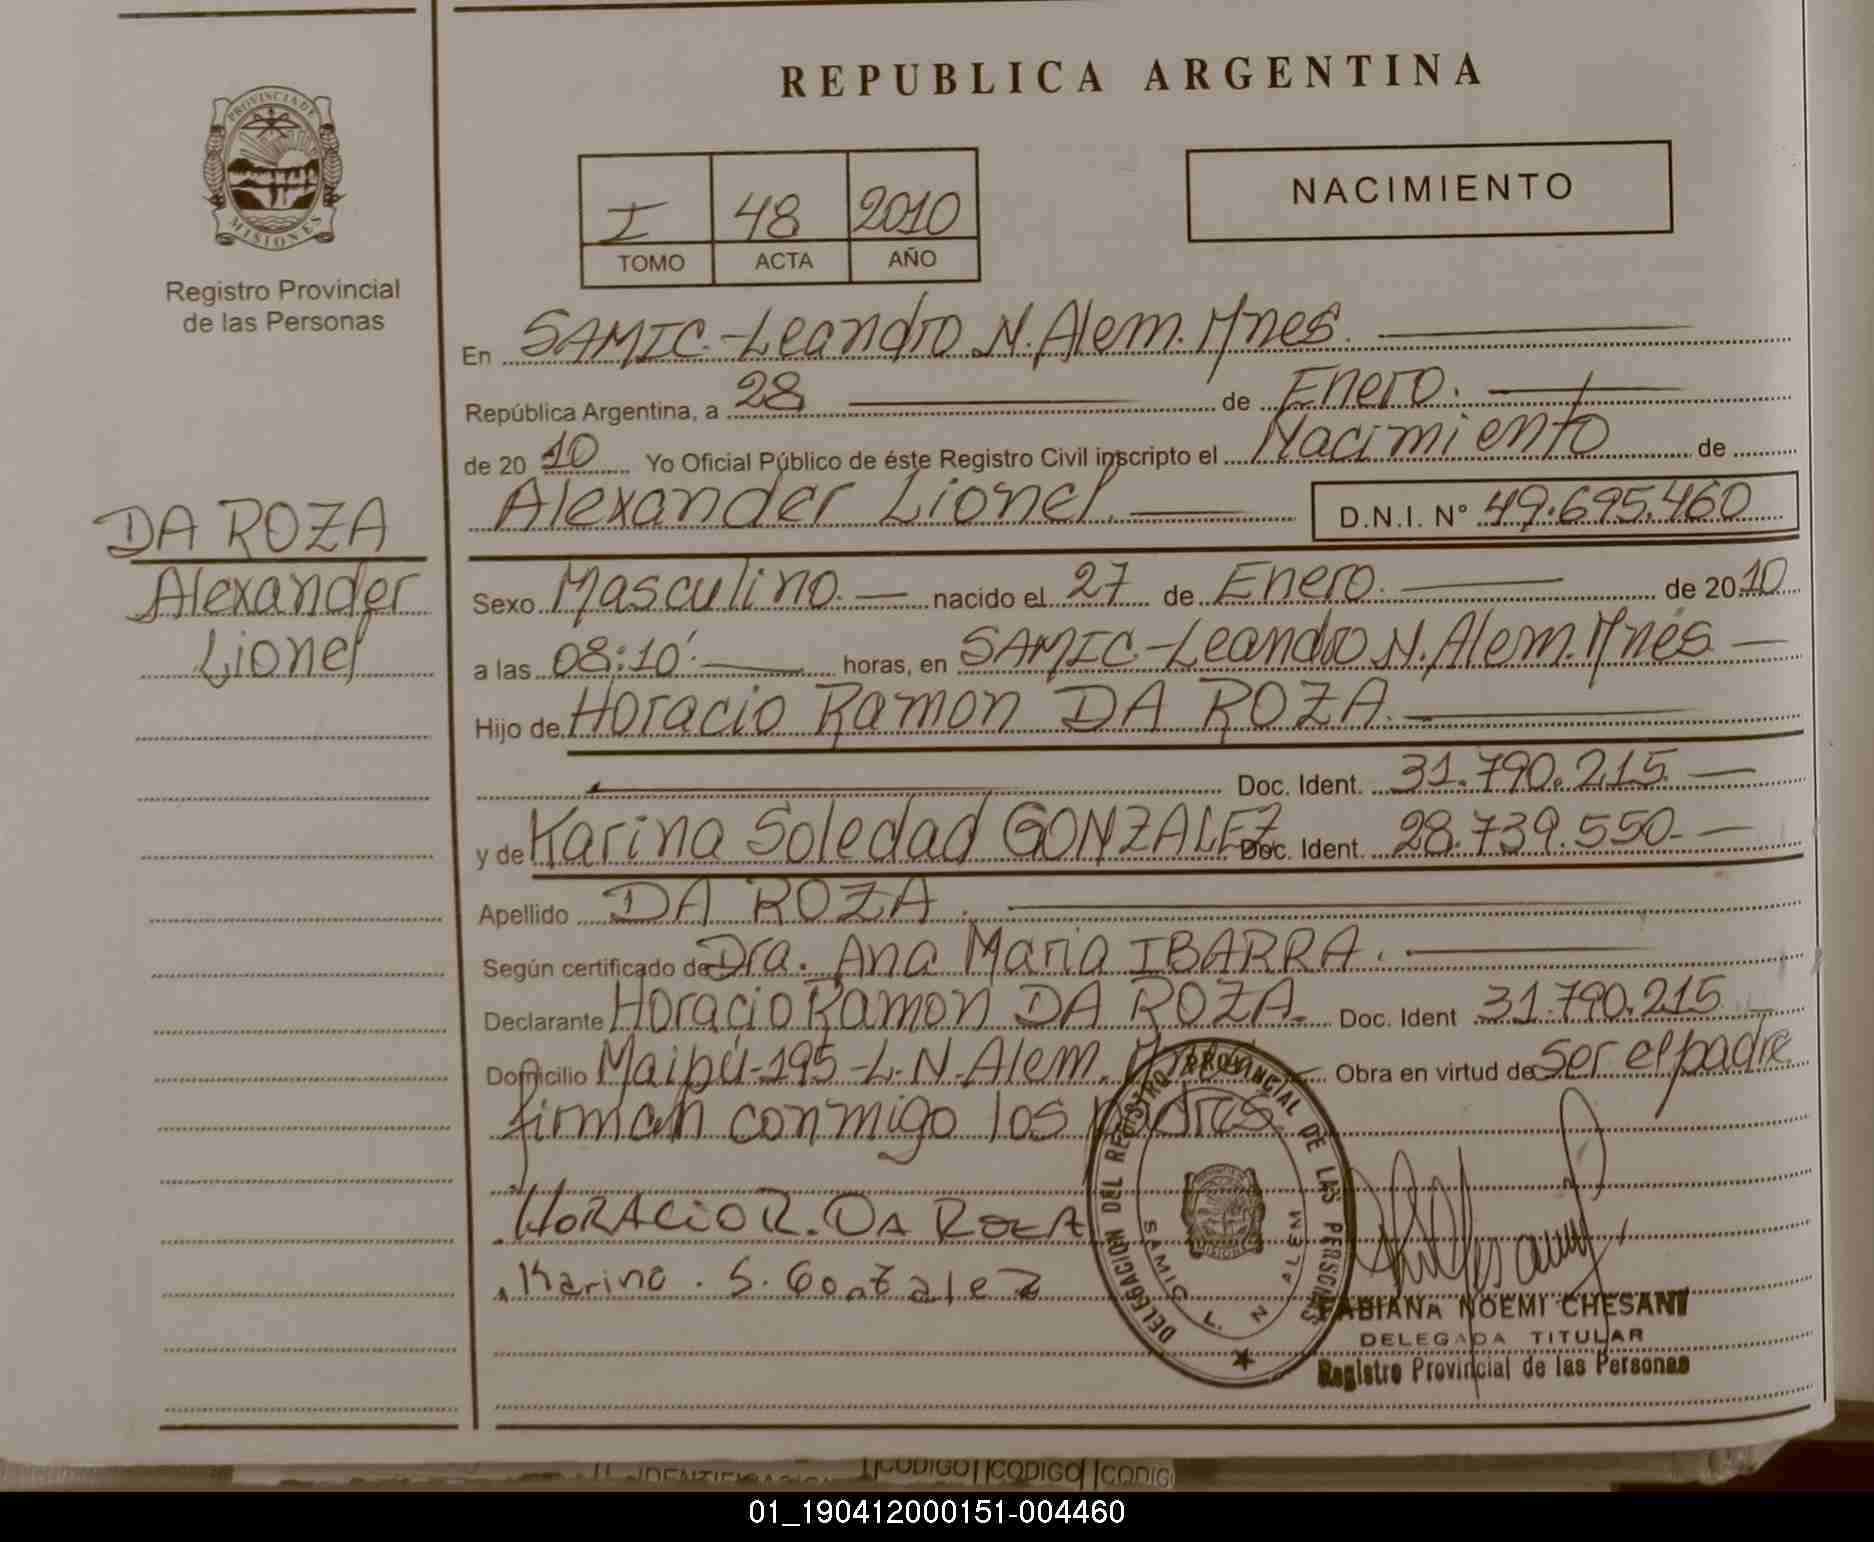 REPUBLICA ARGENTINA
PROVINCIA DE
MISIONES
Registro Provincial
de las Personas
I 48 2010
TOMO ACTA AÑO
NACIMIENTO
En SAMIC.-Leandro N. Alem. Mnes.
República Argentina, a 28 de Enero.
de 20 10 Yo Oficial Público de éste Registro Civil inscripto el Nacimiento de
Alexander Lionel. D.N.I. N° 49.695.460
DA ROZA
Alexander
Lionel
Sexo Masculino. nacido el 27 de Enero. de 20 10
a las 08:10'. horas, en SAMIC-Leandro N. Alem. Mnes
Hijo de Horacio Ramon DA ROZA.
Doc. Ident. 31.790.215
y de Karina Soledad GONZALEZ Doc. Ident. 28.739.550-
Apellido DA ROZA.
Según certificado de Dra. Ana Maria IBARRA.
Declarante Horacio Ramon DA ROZA. Doc. Ident 31.790.215
Domicilio Maipú-195-L.N.Alem. Obra en virtud de Ser el padre
firman conmigo los padres.
HORACIO R. DA ROZA
Karina . S. Gonzalez
DELEGACION DEL REGISTRO PROVINCIAL DE LAS PERSONAS
SAMIC L. N ALEM
MISIONES
FABIANA NOEMI CHESANI
DELEGADA TITULAR
Registro Provincial de las Personas
CODIGO CODIGO
01_190412000151-004460